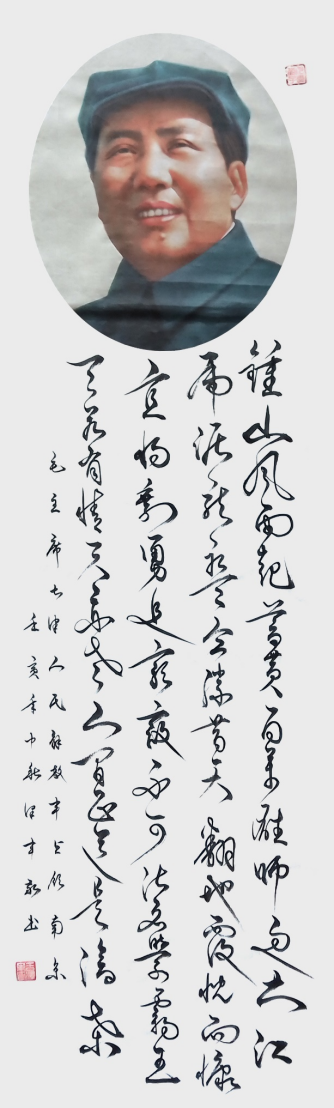 鍾山风雨起蒼黄百萬雄师过大江
虎踞龙盘今勝昔天翻地覆慨而慷
宜将剩勇追窮寇不可沽名學霸王
天若有情天亦老人间正道是滄桑
毛主席七律人民解放军占领南京
壬寅年中秋